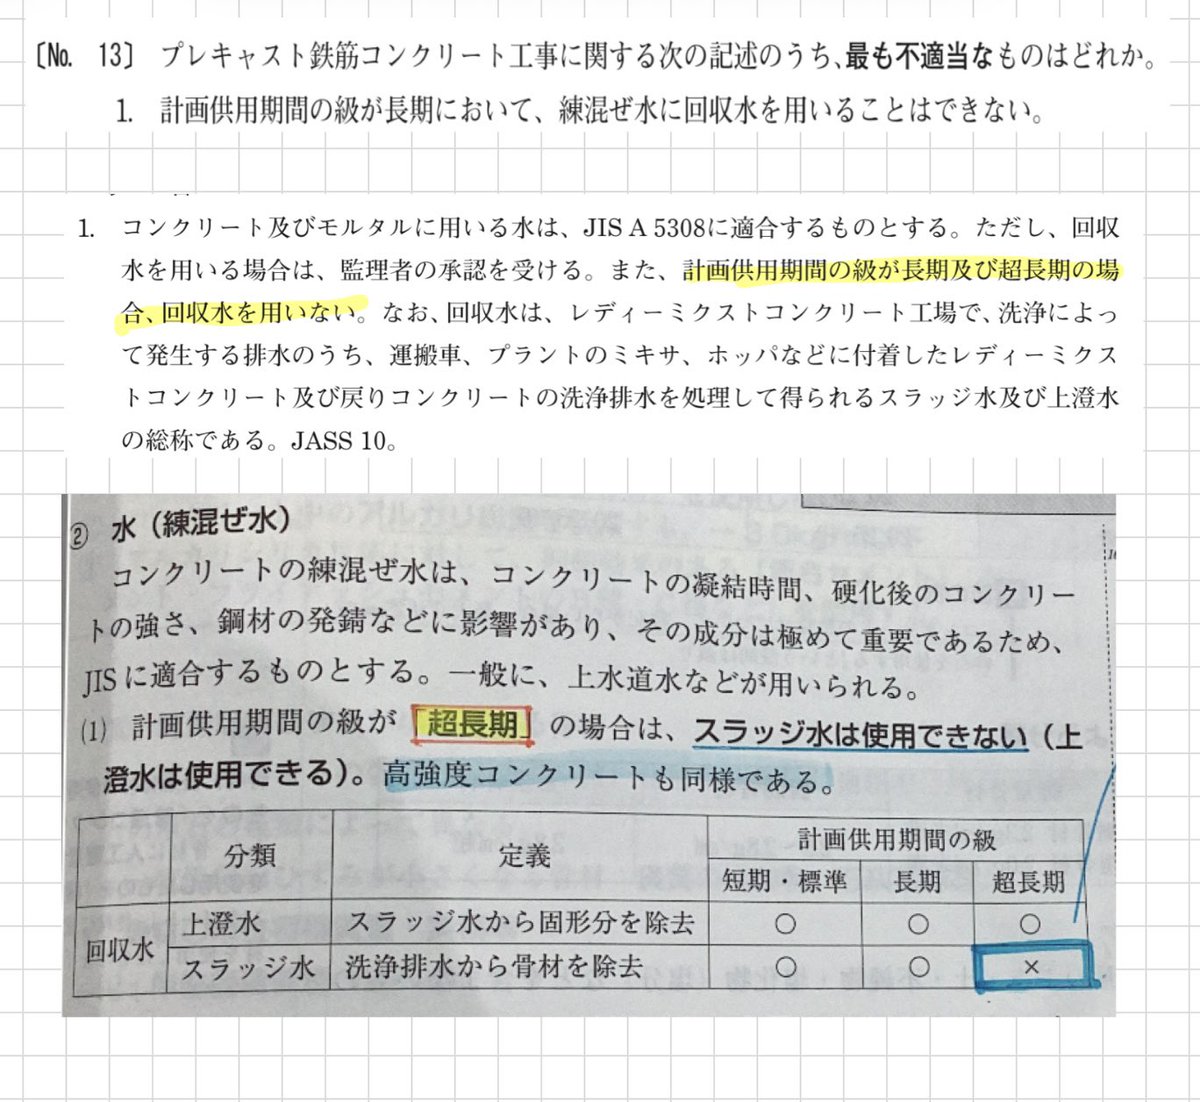 〔No. 13〕 プレキャスト鉄筋コンクリート工事に関する次の記述のうち、最も不適当なものはどれか。
1. 計画供用期間の級が長期において、練混ぜ水に回収水を用いることはできない。
1. コンクリート及びモルタルに用いる水は、JIS A 5308に適合するものとする。ただし、回収
水を用いる場合は、監理者の承認を受ける。また、計画供用期間の級が長期及び超長期の場
合、回収水を用いない。なお、回収水は、レディーミクストコンクリート工場で、洗浄によっ
て発生する排水のうち、運搬車、プラントのミキサ、ホッパなどに付着したレディーミクス
トコンクリート及び戻りコンクリートの洗浄排水を処理して得られるスラッジ水及び上澄水
の総称である。JASS 10。
② 水（練混ぜ水）
コンクリートの練混ぜ水は、コンクリートの凝結時間、硬化後のコンクリー
トの強さ、鋼材の発錆などに影響があり、その成分は極めて重要であるため、
JISに適合するものとする。一般に、上水道水などが用いられる。
(1) 計画供用期間の級が「超長期」の場合は、スラッジ水は使用できない（上
澄水は使用できる）。高強度コンクリートも同様である。
分類 定義 計画供用期間の級
短期・標準 長期 超長期
回収水 上澄水 スラッジ水から固形分を除去 ○ ○ ○
スラッジ水 洗浄排水から骨材を除去 ○ ○ ×